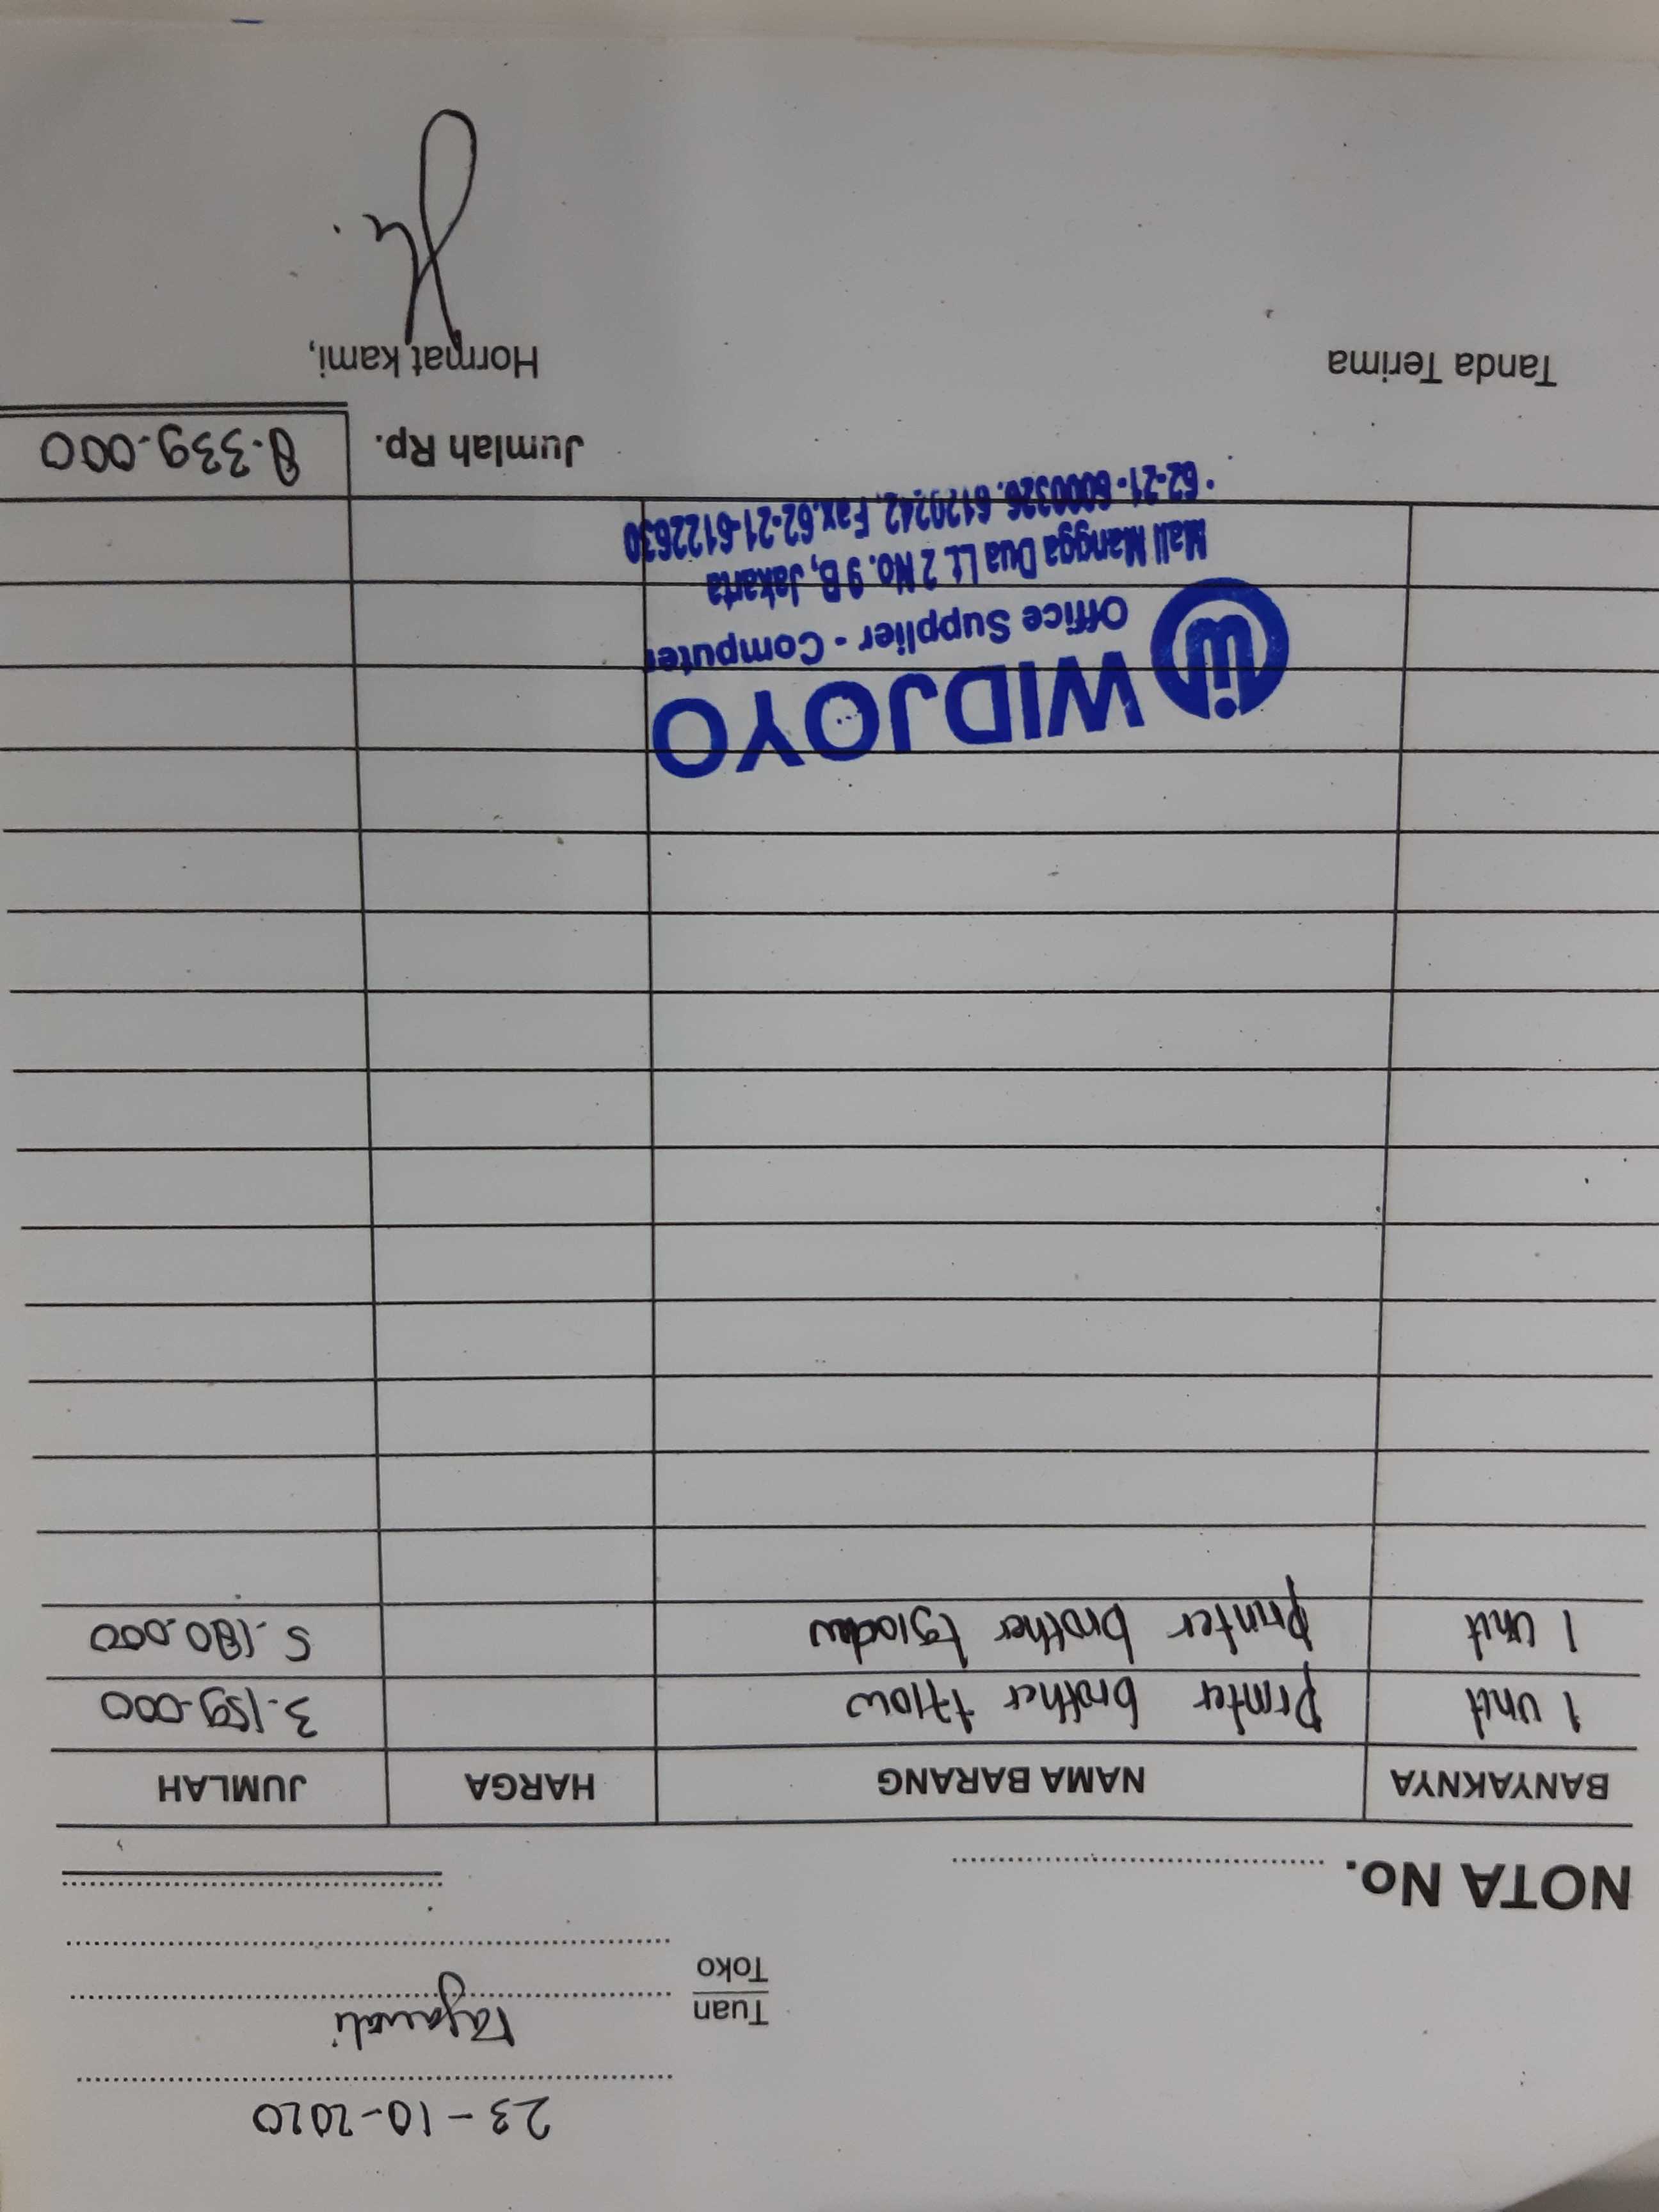 23-10-2020
Tuan
Toko
Rajawali
NOTA No.
BANYAKNYA NAMA BARANG HARGA JUMLAH
1 unit Printer brother t710w 3.159.000
1 unit Printer brother t910dw 5.180.000
WIDJOYO
Office Supplier - Computer
Mall Mangga Dua Lt. 2 No. 9 B, Jakarta
62-21-6000326. Fax.62-21-6122630
Jumlah Rp. 8.339.000
Tanda Terima Hormat kami,